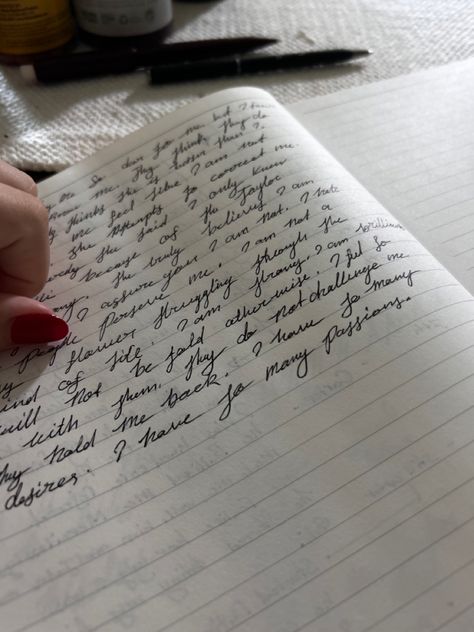 So for me but I
me. They think they do
thinks she's than I
me feel like I am not
She attempts to correct me
she said I only knew
because of the Taylor
She truly believes I am
I assure you I am not. I hate
people Perserve me. I am not a
flower struggling through the
of life. I am strong. I am brilliant
will not be told otherwise. I feel so
with them. They do not challenge me
hold me back. I have so many
desires. I have so many passions.